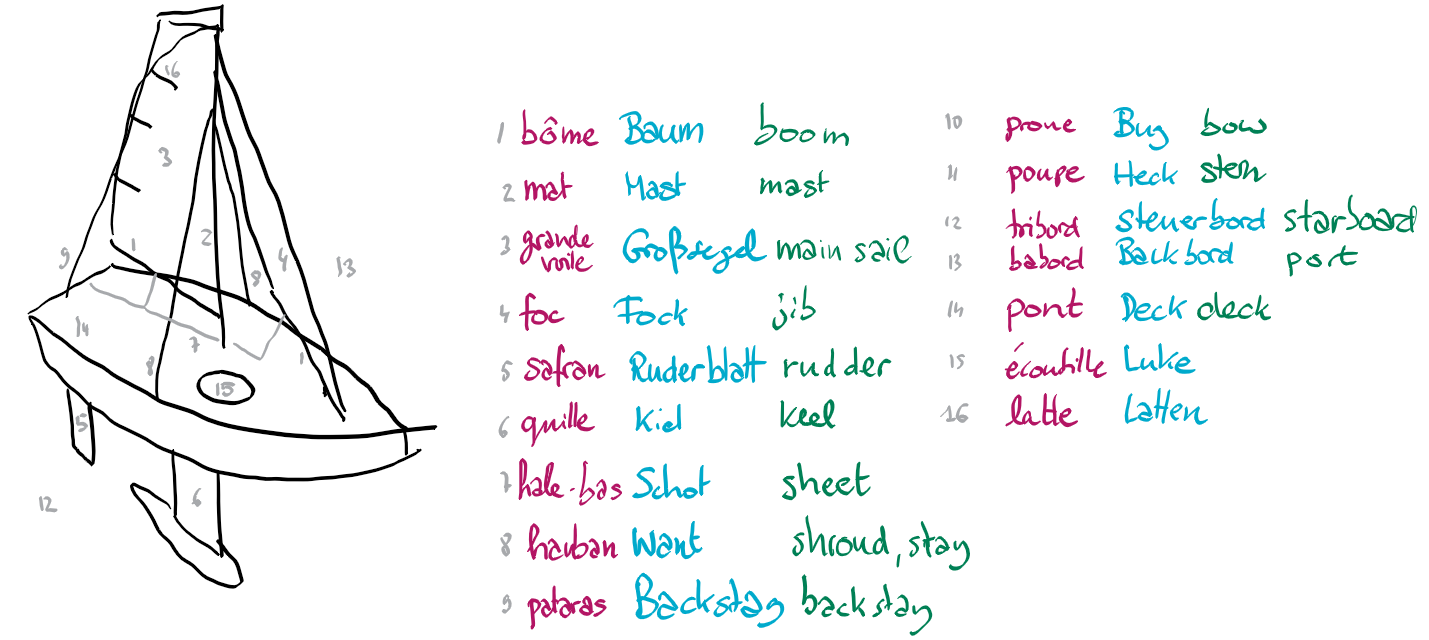 16
3
9
1
2
8
4
13
14
7
8
1
15
5
6
12
1 bôme Baum boom
2 mat Mast mast
3 grande voile Großsegel main sail
4 foc Fock jib
5 safran Ruderblatt rudder
6 quille Kiel keel
7 hale-bas Schot sheet
8 hauban Want shroud, stay
9 pataras Backstag backstay
10 proue Bug bow
11 poupe Heck stern
12 tribord Steuerbord starboard
13 babord Backbord port
14 pont Deck deck
15 écoutille Luke
16 latte Latten